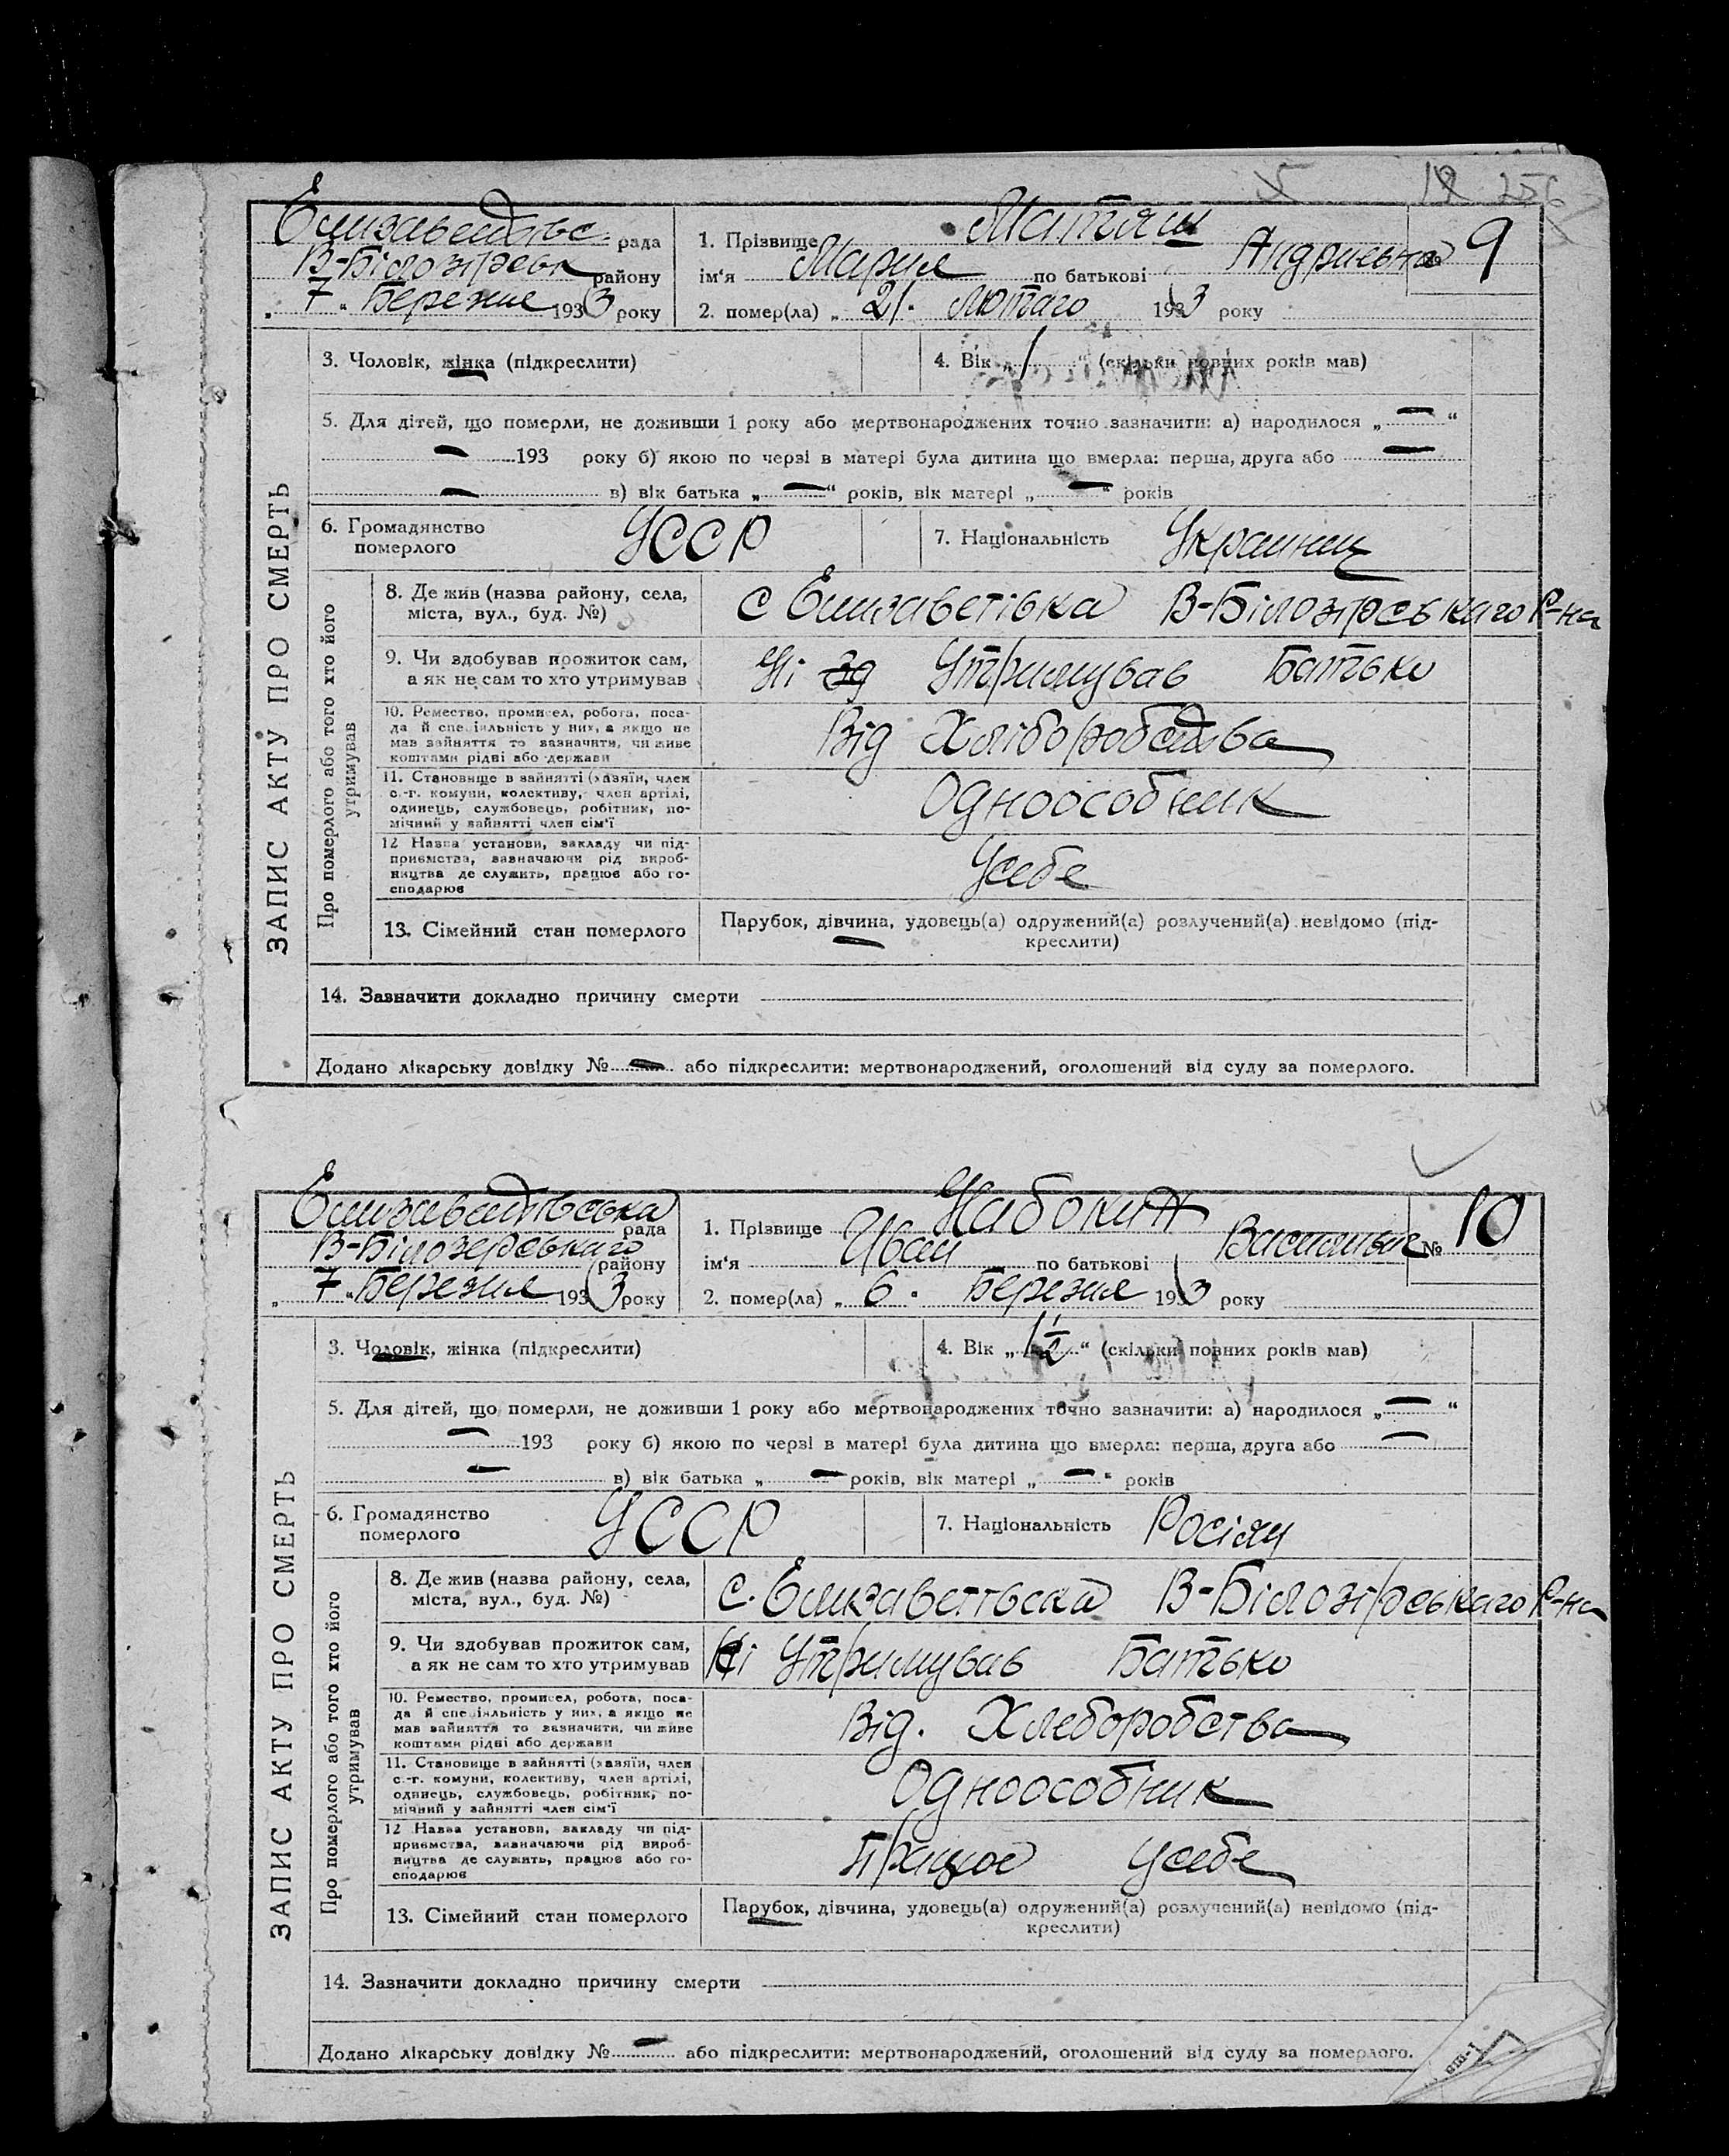 Елизаветовс рада
В-Білозірськ району
„ 7 “ Березня 1933 року
1. Прізвище Матяш
ім‘я Мария по батькові Андриевна 9
2. помер(ла) „ 21. лютаго 1933 року
ЗАПИС АКТУ ПРО СМЕРТЬ
3. Чоловік, жінка (підкреслити)
4. Вік „ 1 “ (скільки повних років мав)
5. Для дітей, що померли, не доживши 1 року або мертвонароджених точно зазначити: а) народилося „ — “
— 193 року б) якою по черзі в матері була дитина що вмерла: перша, друга або —
— в) вік батька „ — “ років, вік матері „ — “ років
6. Громадянство
померлого
УССР
7. Національність Украинец
Про померлого або того хто його
утримував
8. Де жив (назва району, села,
міста, вул., буд. №)
с Елизаветівка В-Білозірськаго Р-на
9. Чи здобував прожиток сам,
а як не сам то хто утримував
Ні Утримував Батько
10. Ремество, промисел, робота, поса-
да й спеціяльність у них, а якщо не
мав зайняття то зазначити, чи живе
коштами рідні або держави
Від Хліборобства
11. Становище в зайнятті (хазяїн, член
с.-г. комуни, колективу, член артілі,
одинець, службовець, робітник, по-
мічний у зайнятті член сім‘ї
Одноособник
12 Назва установи, закладу чи під-
приємства, зазначаючи рід вироб-
ництва де служить, працює або го-
сподарює
Усебе
13. Сімейний стан померлого
Парубок, дівчина, удовець(а) одружений(а) розлучений(а) невідомо (під-
креслити)
14. Зазначити докладно причину смерти
Додано лікарську довідку № — або підкреслити: мертвонароджений, оголошений від суду за померлого.
Елизаветовська рада
В-Білозерського району
„ 7 “ Березня 1933 року
1. Прізвище
ім‘я Иван по батькові № 10
2. помер(ла) „ 6 . Березня 1933 року
ЗАПИС АКТУ ПРО СМЕРТЬ
3. Чоловік, жінка (підкреслити)
4. Вік „ 1½ “ (скільки повних років мав)
5. Для дітей, що померли, не доживши 1 року або мертвонароджених точно зазначити: а) народилося „ — “
— 193 року б) якою по черзі в матері була дитина що вмерла: перша, друга або —
— в) вік батька „ — років, вік матері „ — “ років
6. Громадянство
померлого
УССР
7. Національність Росіян
Про померлого або того хто його
утримував
8. Де жив (назва району, села,
міста, вул., буд. №)
с. В-Білозірськаго Р-на
9. Чи здобував прожиток сам,
а як не сам то хто утримував
Ні Утримував Батько
10. Ремество, промисел, робота, поса-
да й спеціяльність у них, а якщо не
мав зайняття то зазначити, чи живе
коштами рідні або держави
Від. Хлеборобства
11. Становище в зайнятті (хазяїн, член
с.-г. комуни, колективу, член артілі,
одинець, службовець, робітник, по-
мічний у зайнятті член сім‘ї
Одноособник
12 Назва установи, закладу чи під-
приємства, зазначаючи рід вироб-
ництва де служить, працює або го-
сподарює
Працює Усебе
13. Сімейний стан померлого
Парубок, дівчина, удовець(а) одружений(а) розлучений(а) невідомо (під-
креслити)
14. Зазначити докладно причину смерти
Додано лікарську довідку № — або підкреслити: мертвонароджений, оголошений від суду за померлого.